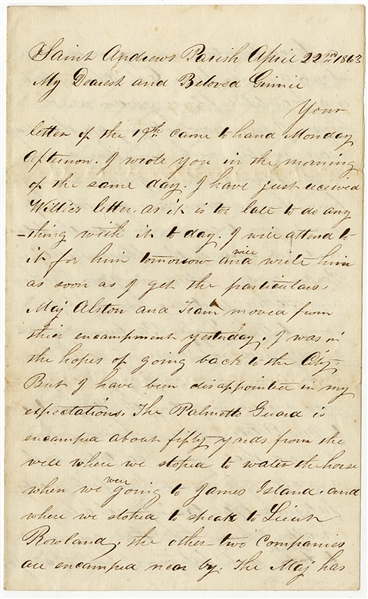 Saint Andrews Parish April 22nd 1863
My Dearest and Beloved Ginnie
Your
letter of the 19th came to hand Monday
Afternoon. I wrote you in the morning
of the same day. I have just received
Willie's letter. as it is too late to do any
-thing with it to day. I will attend to
it for him tomorrow and will write him
as soon as I get the particulars
Maj Alston and Team moved from
this encampment yesterday. I was in
the hopes of going back to the City.
But I have been disappointed in my
expectations. The Palmetto Guard is
encamped about fifty yards from the
well where we stoped to water the horse
when we were going to James Island. and
where we stoped to speak to Lieut
Rowland. the other two Companies
are encamped near by. The Maj has